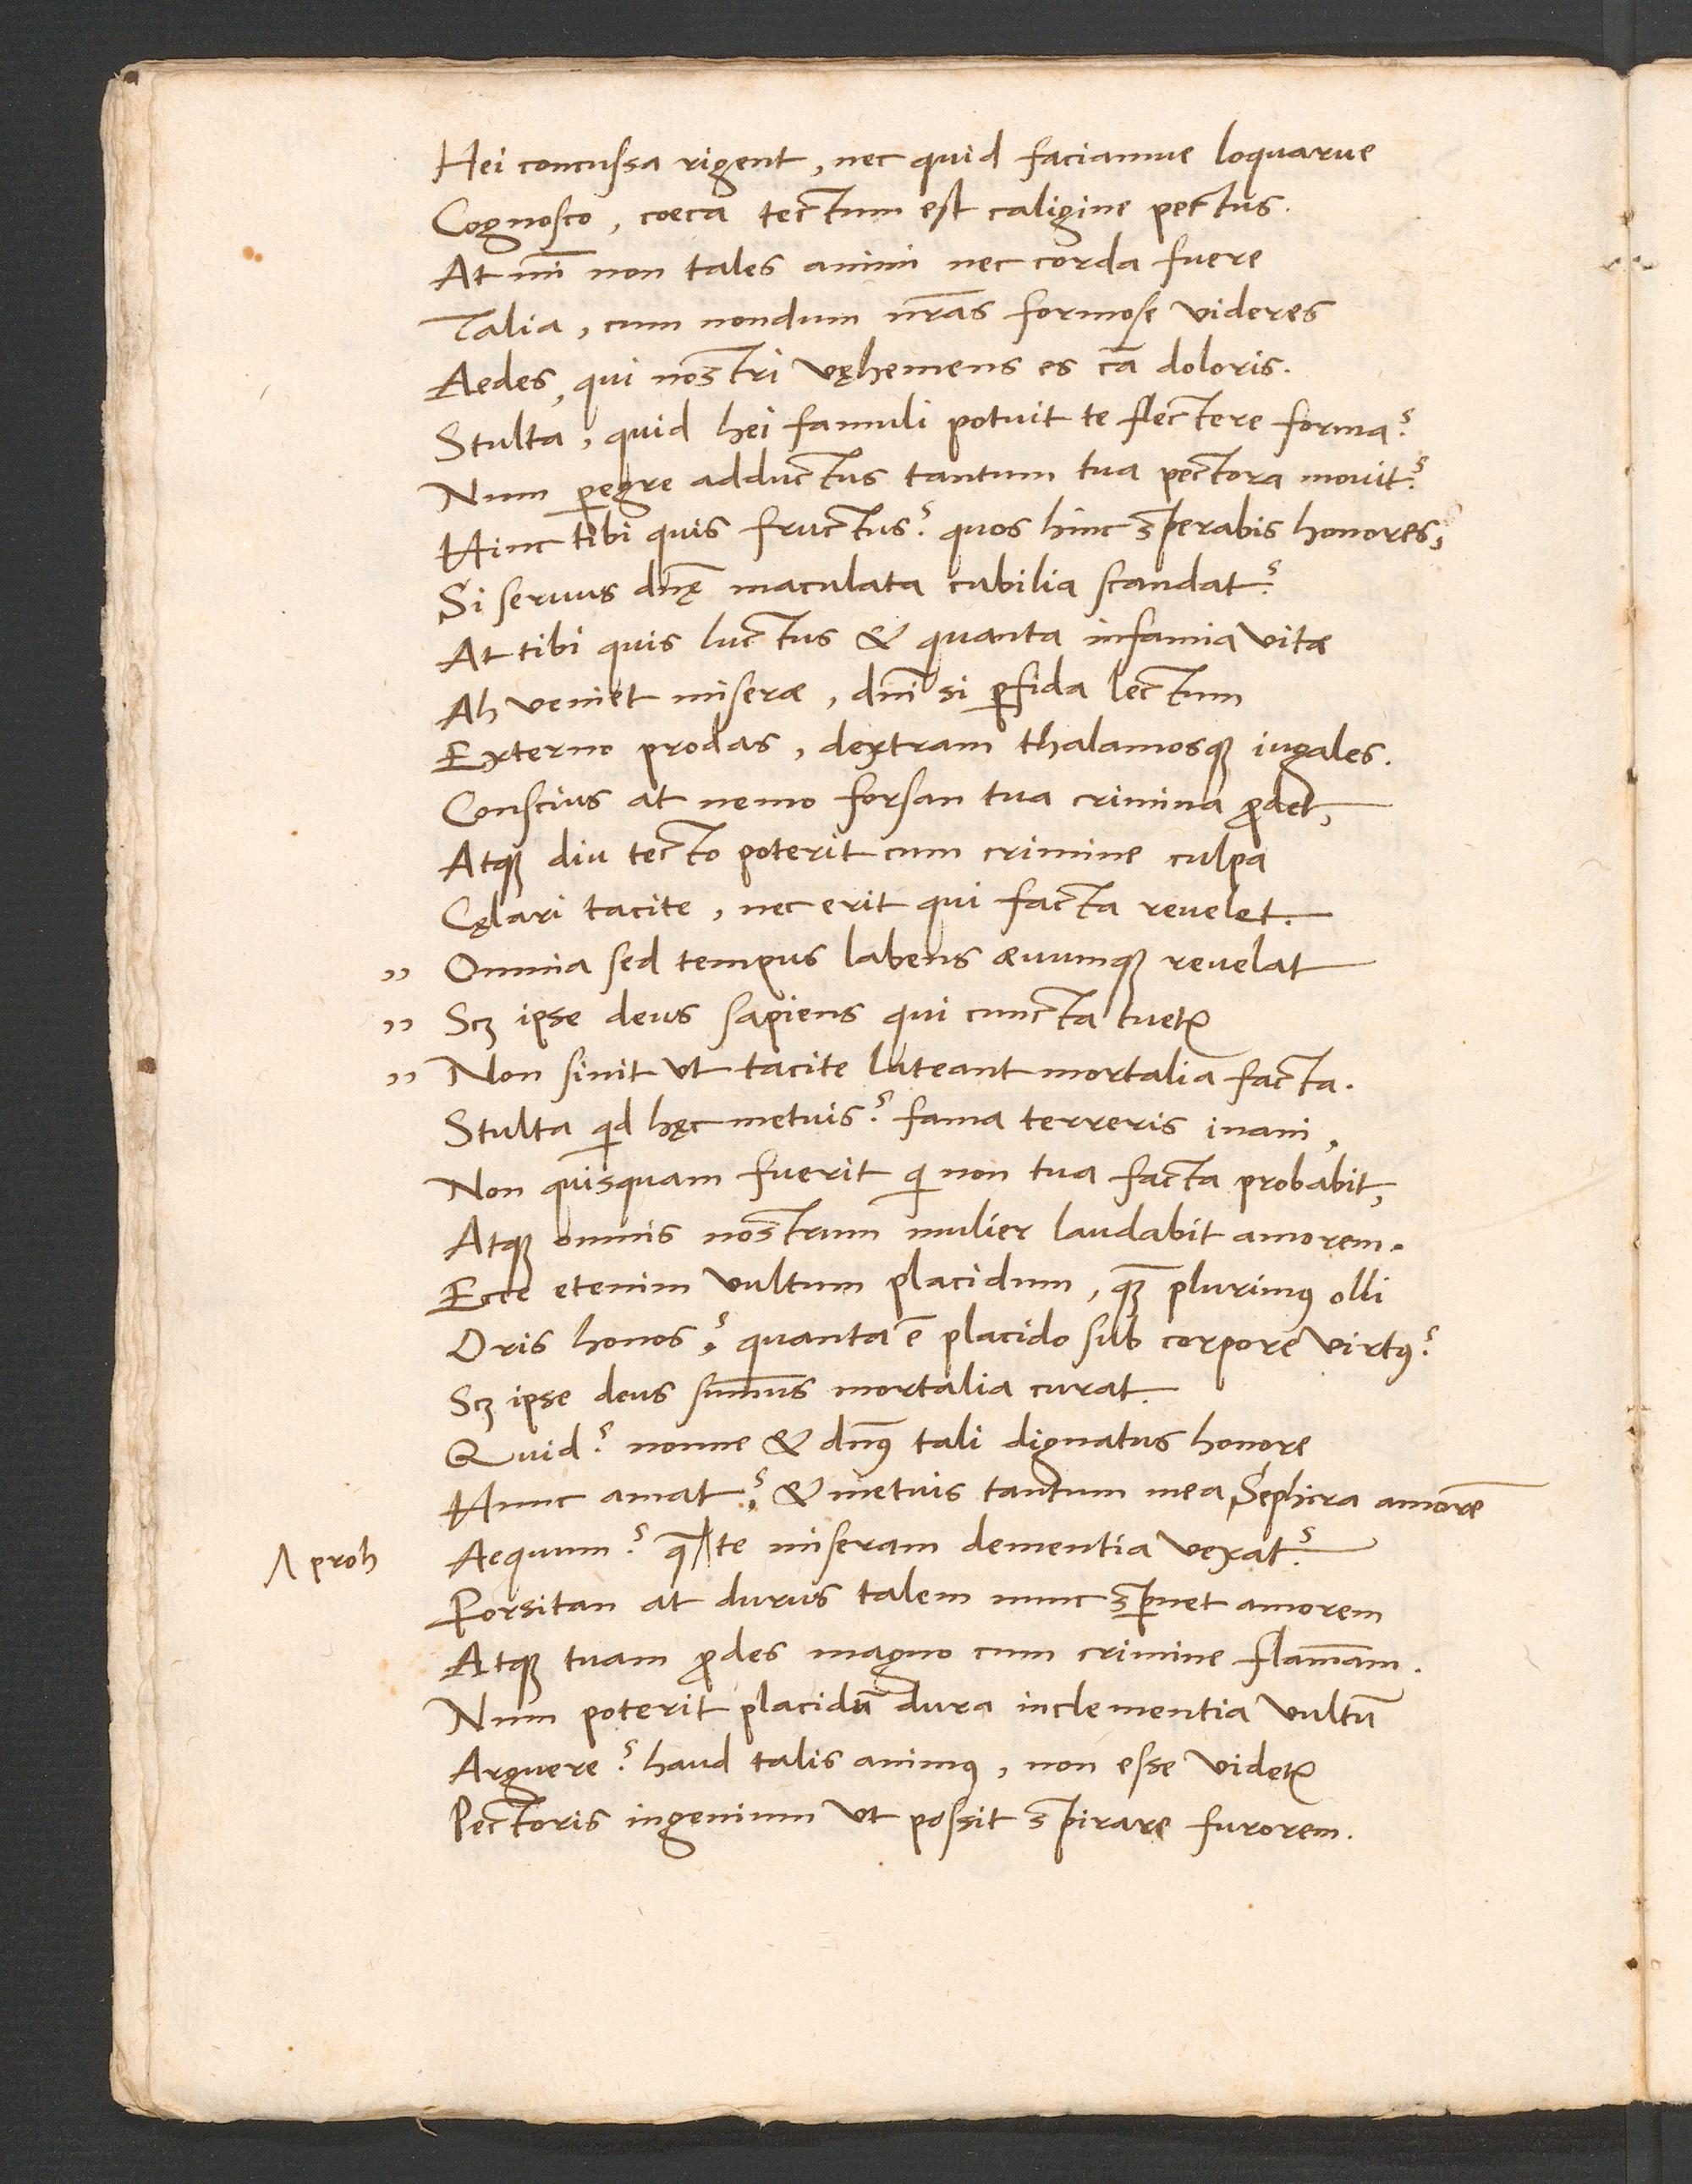 Hei concussa rigent, nec quid faciamue loquarue
Cognosco, coeca tectum est caligine pectus.
At mı̄ non tales animi nec corda fuere
Talia, cum nondum nr̄as formose videres
Aedes, qui nostri vęhemens es cā doloris.
Stulta, quid hei famuli potuit te flectere forma?
Num ꝑegre adductus tantum tua pectora mouit?
Hinc tibi quis fructus? quos hinc sperabis honores,
Si seruus dn̄ę maculata cubilia scandat?
At tibi quis luctus & quanta infamia vitæ
Ah veniet miseræ, dn̄i si ꝑfida lectum
Externo prodas, dextram thalamosqꝫ iugales.
Conscius at nemo forsan tua crimina ꝓdet,
Atqꝫ diu tecto poterit cum crimine culpa
Cęlari tacite, nec erit qui facta reuelet.
„ Omnia sed tempus labens æuumqꝫ reuelat
„ Scꝫ ipse deus sapiens qui cuncta tuetꝛ
„ Non sinit vt tacite lateant mortalia facta.
Stulta qd hęc metuis? fama terreris inani,
Non quisquam fuerit q non tua facta probabit,
Atqꝫ omnis nostrum mulier laudabit amorem.
Ecce etenim vultum placidum, qꝫ plurimꝰ olli
Oris honos? quanta ē placido sub corpore virtꝰ?
Scꝫ ipse deus sum̄us mortalia curat.
Quid? nonne & dn̄ꝰ tali dignatus honore
Hunc amat? & metuis tantum mea Sephira amorē
/\ proh Aequum? q̄ /\ te miseram dementia vexat?
Forsitan at durus talem nunc spꝑnet amorem
Atqꝫ tuam ꝓdes magno cum crimine flam̄am.
Num poterit placidū dura inclementia vultū
Arguere? haud talis animꝰ, non esse videtꝛ
Pectoris ingenium vt possit spirare furorem.